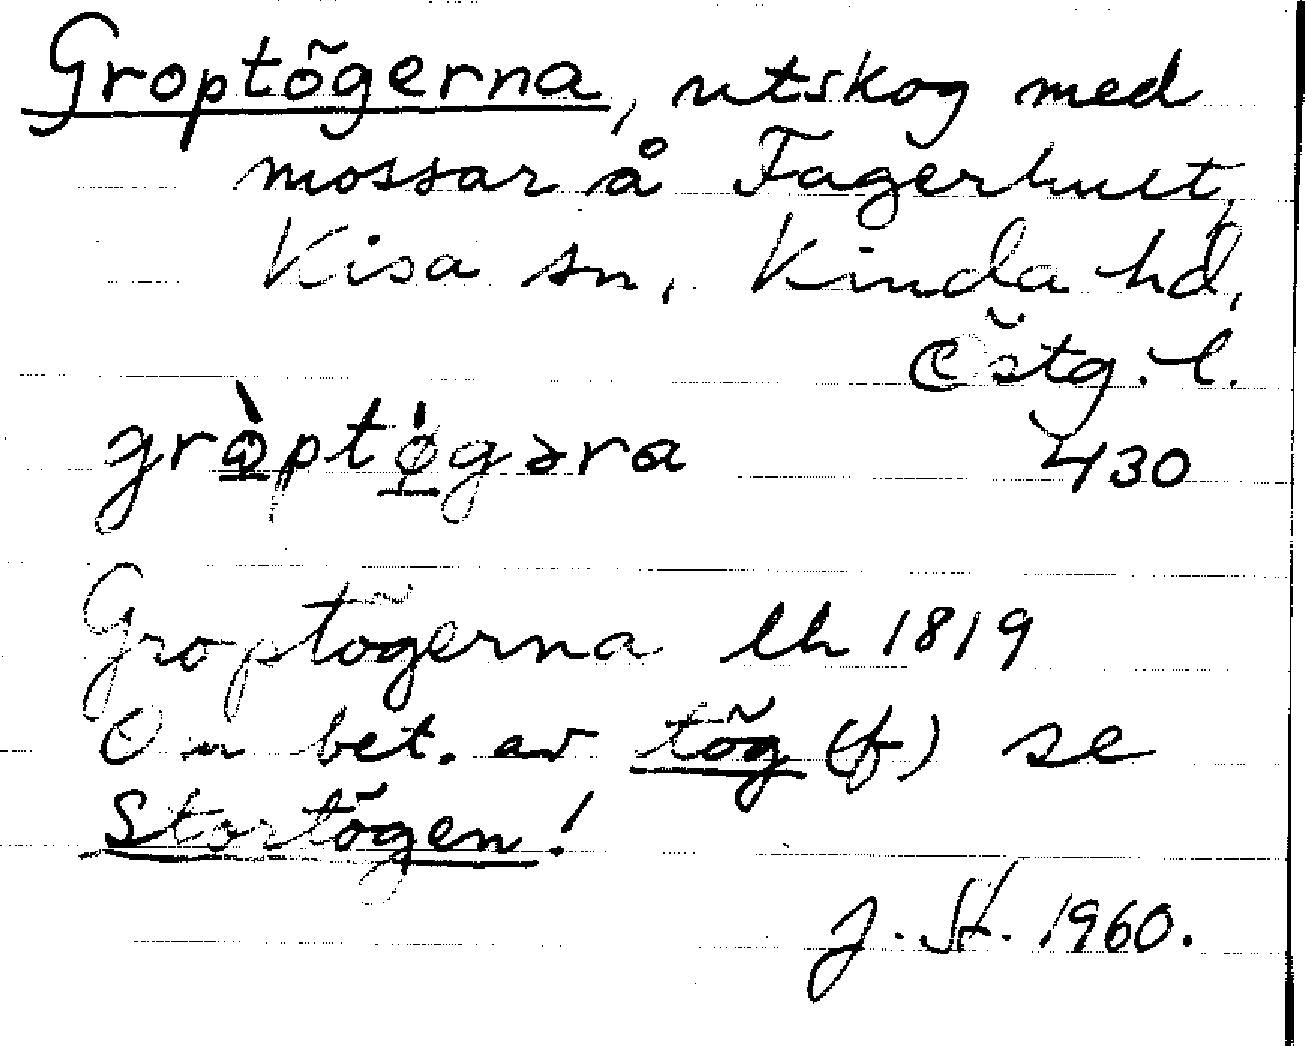 Groptögerna, utskog med
mossar å Fagerhult,
Kisa sn, Kinda hd,
Östg. l.
grò̲ptø̲̇gəra 430
Groptögerna lh 1819
Om bet. av tög (f) se
Stortögen!
J. St. 1960.